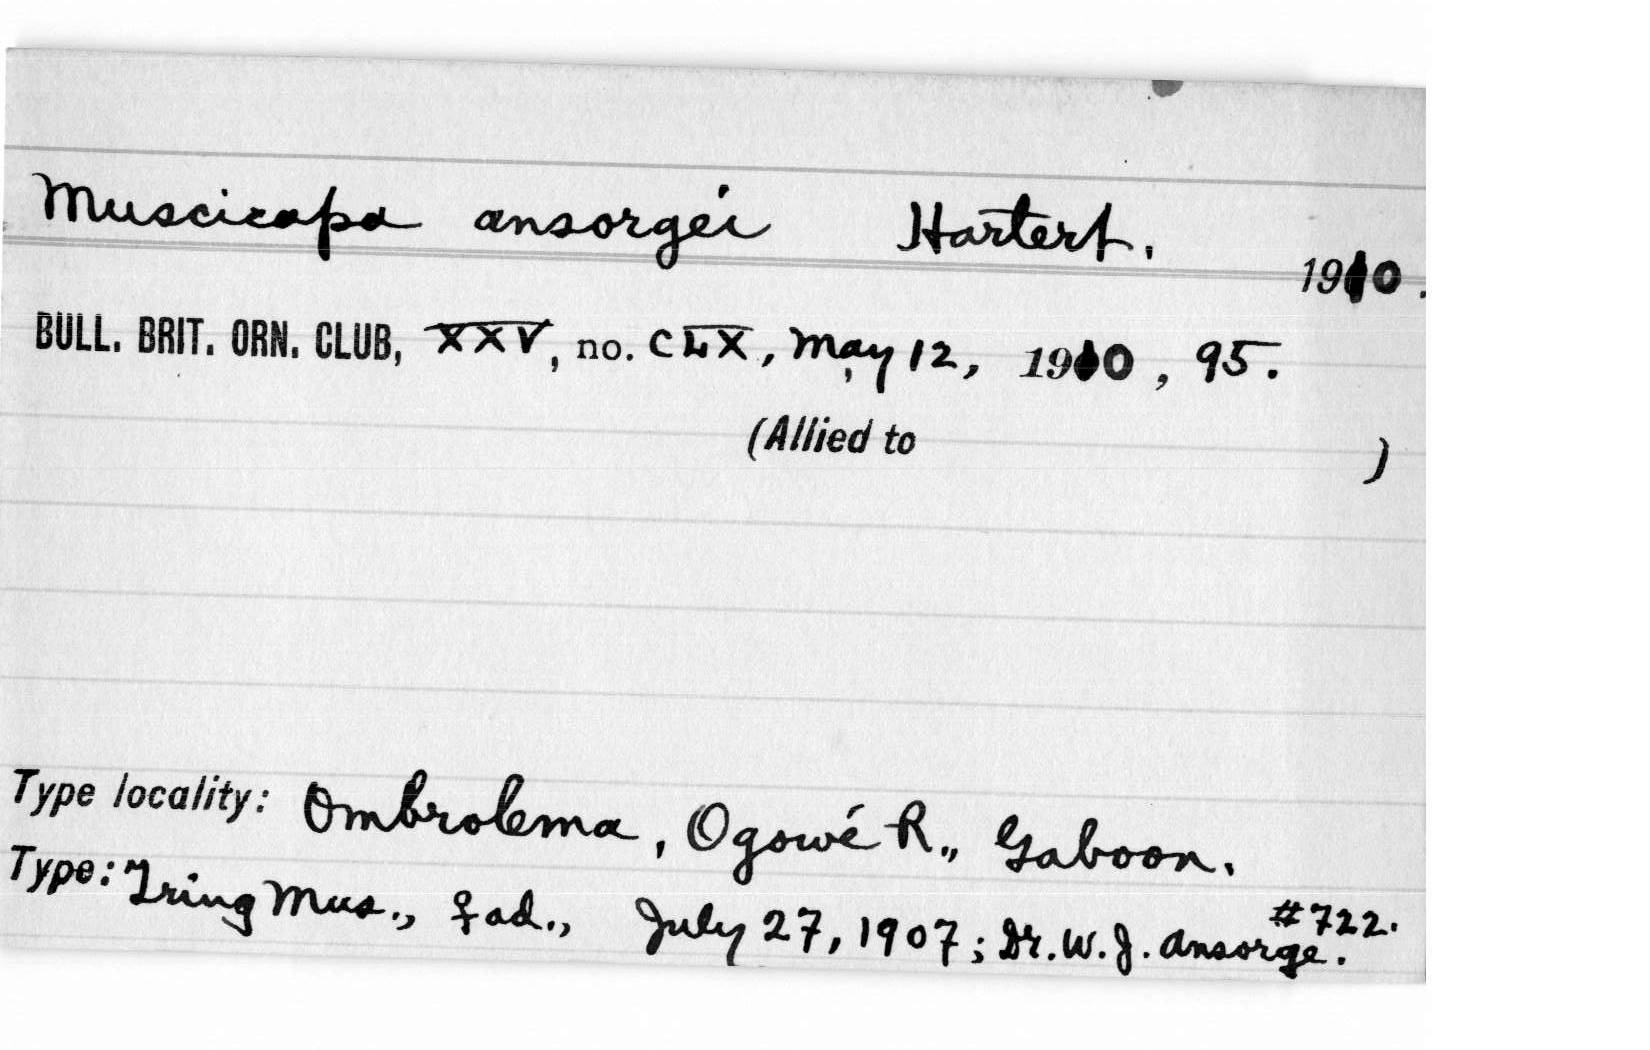 Muscicapa ansorgei Hartert.
1910.
BULL. BRIT. ORN. CLUB, XXV, no. CLX, May 12, 1910, 95.
(Allied to )
Type locality: Ombrolema, Ogowé R., Gaboon.
Type: Tring Mus., ♀ ad., July 27, 1907; Dr. W. J. Ansorge. #722.